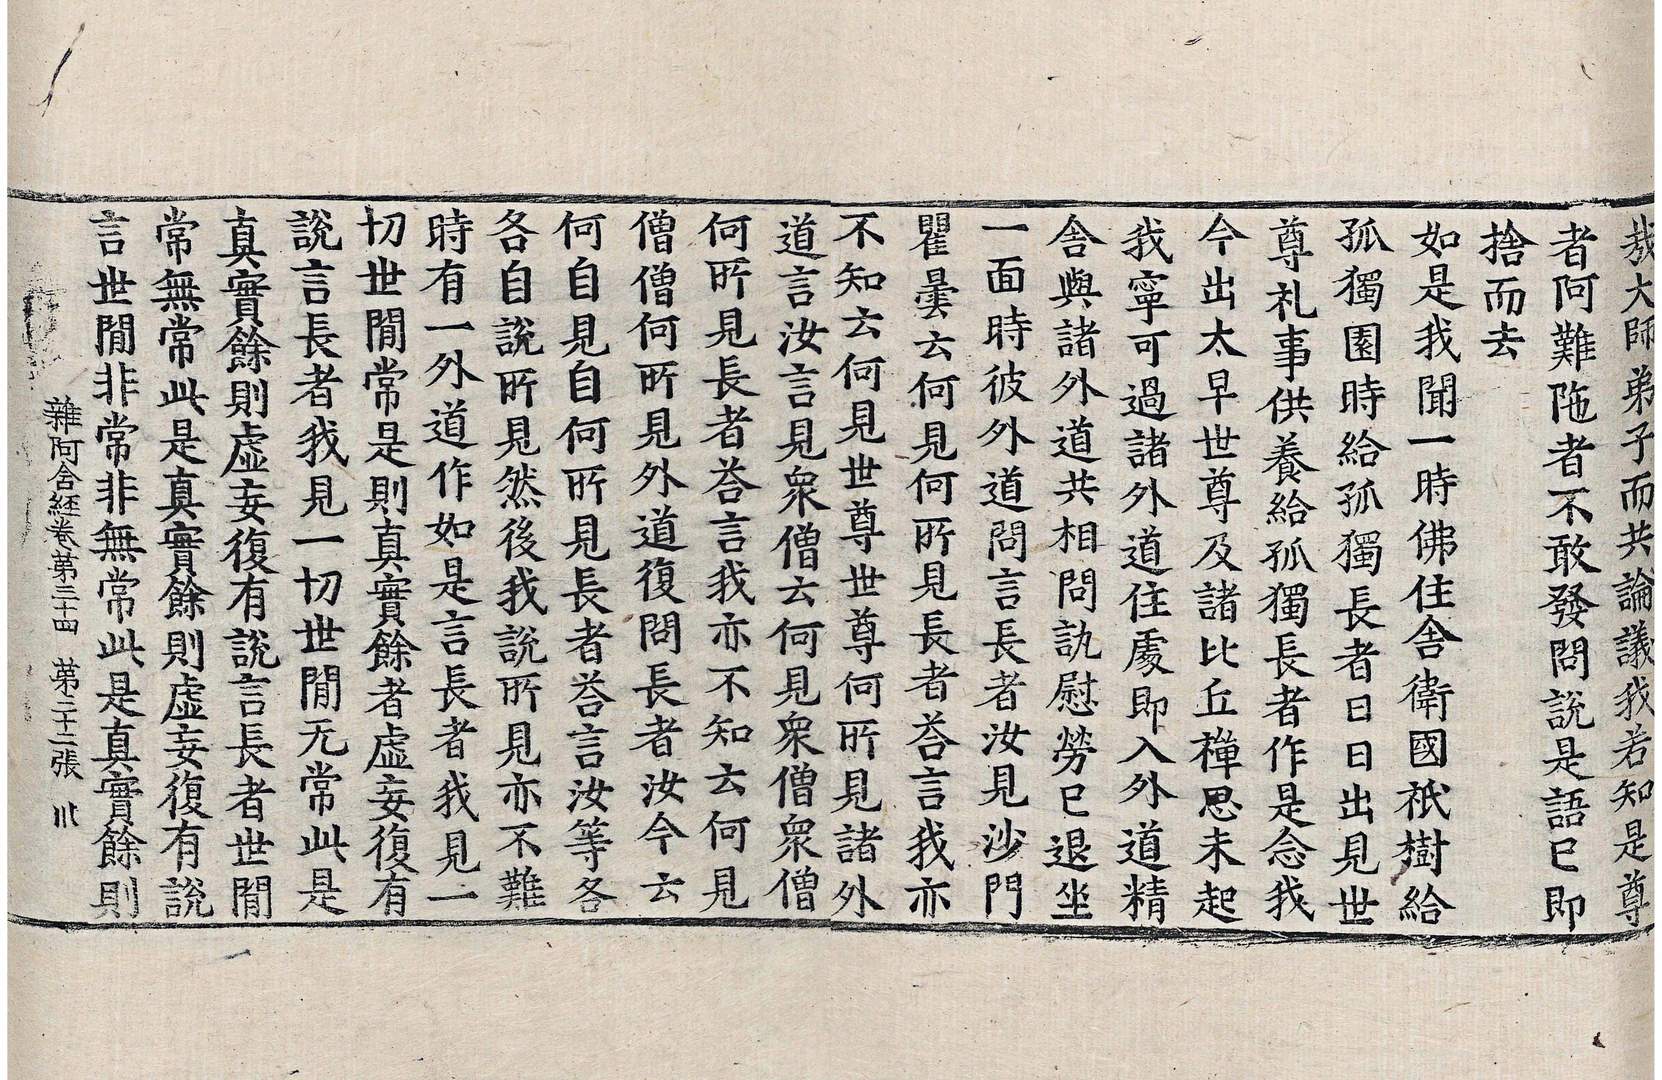 哉大師弟子而共論議我若知是尊
者阿難陁者不敢發問說是語已即
捨而去
如是我聞一時佛住舍衛國祇樹給
孤獨園時給孤獨長者日日出見世
尊礼事供養給孤獨長者作是念我
今出太早世尊及諸比丘禪思未起
我寧可過諸外道住處即入外道精
舍與諸外道共相問訊慰勞已退坐
一面時彼外道問言長者汝見沙門
瞿曇云何見何所見長者荅言我亦
不知云何見世尊世尊何所見諸外
道言汝言見衆僧云何見衆僧衆僧
何所見長者荅言我亦不知云何見
僧僧何所見外道復問長者汝今云
何自見自何所見長者荅言汝等各
各自說所見然後我說所見亦不難
時有一外道作如是言長者我見一
切世閒常是則真實餘者虛妄復有
說言長者我見一切世閒无常此是
真實餘則虛妄復有說言長者世閒
常無常此是真實餘則虛妄復有說
言世閒非常非無常此是真實餘則
雜阿含經卷第三十四　第二十二張　川